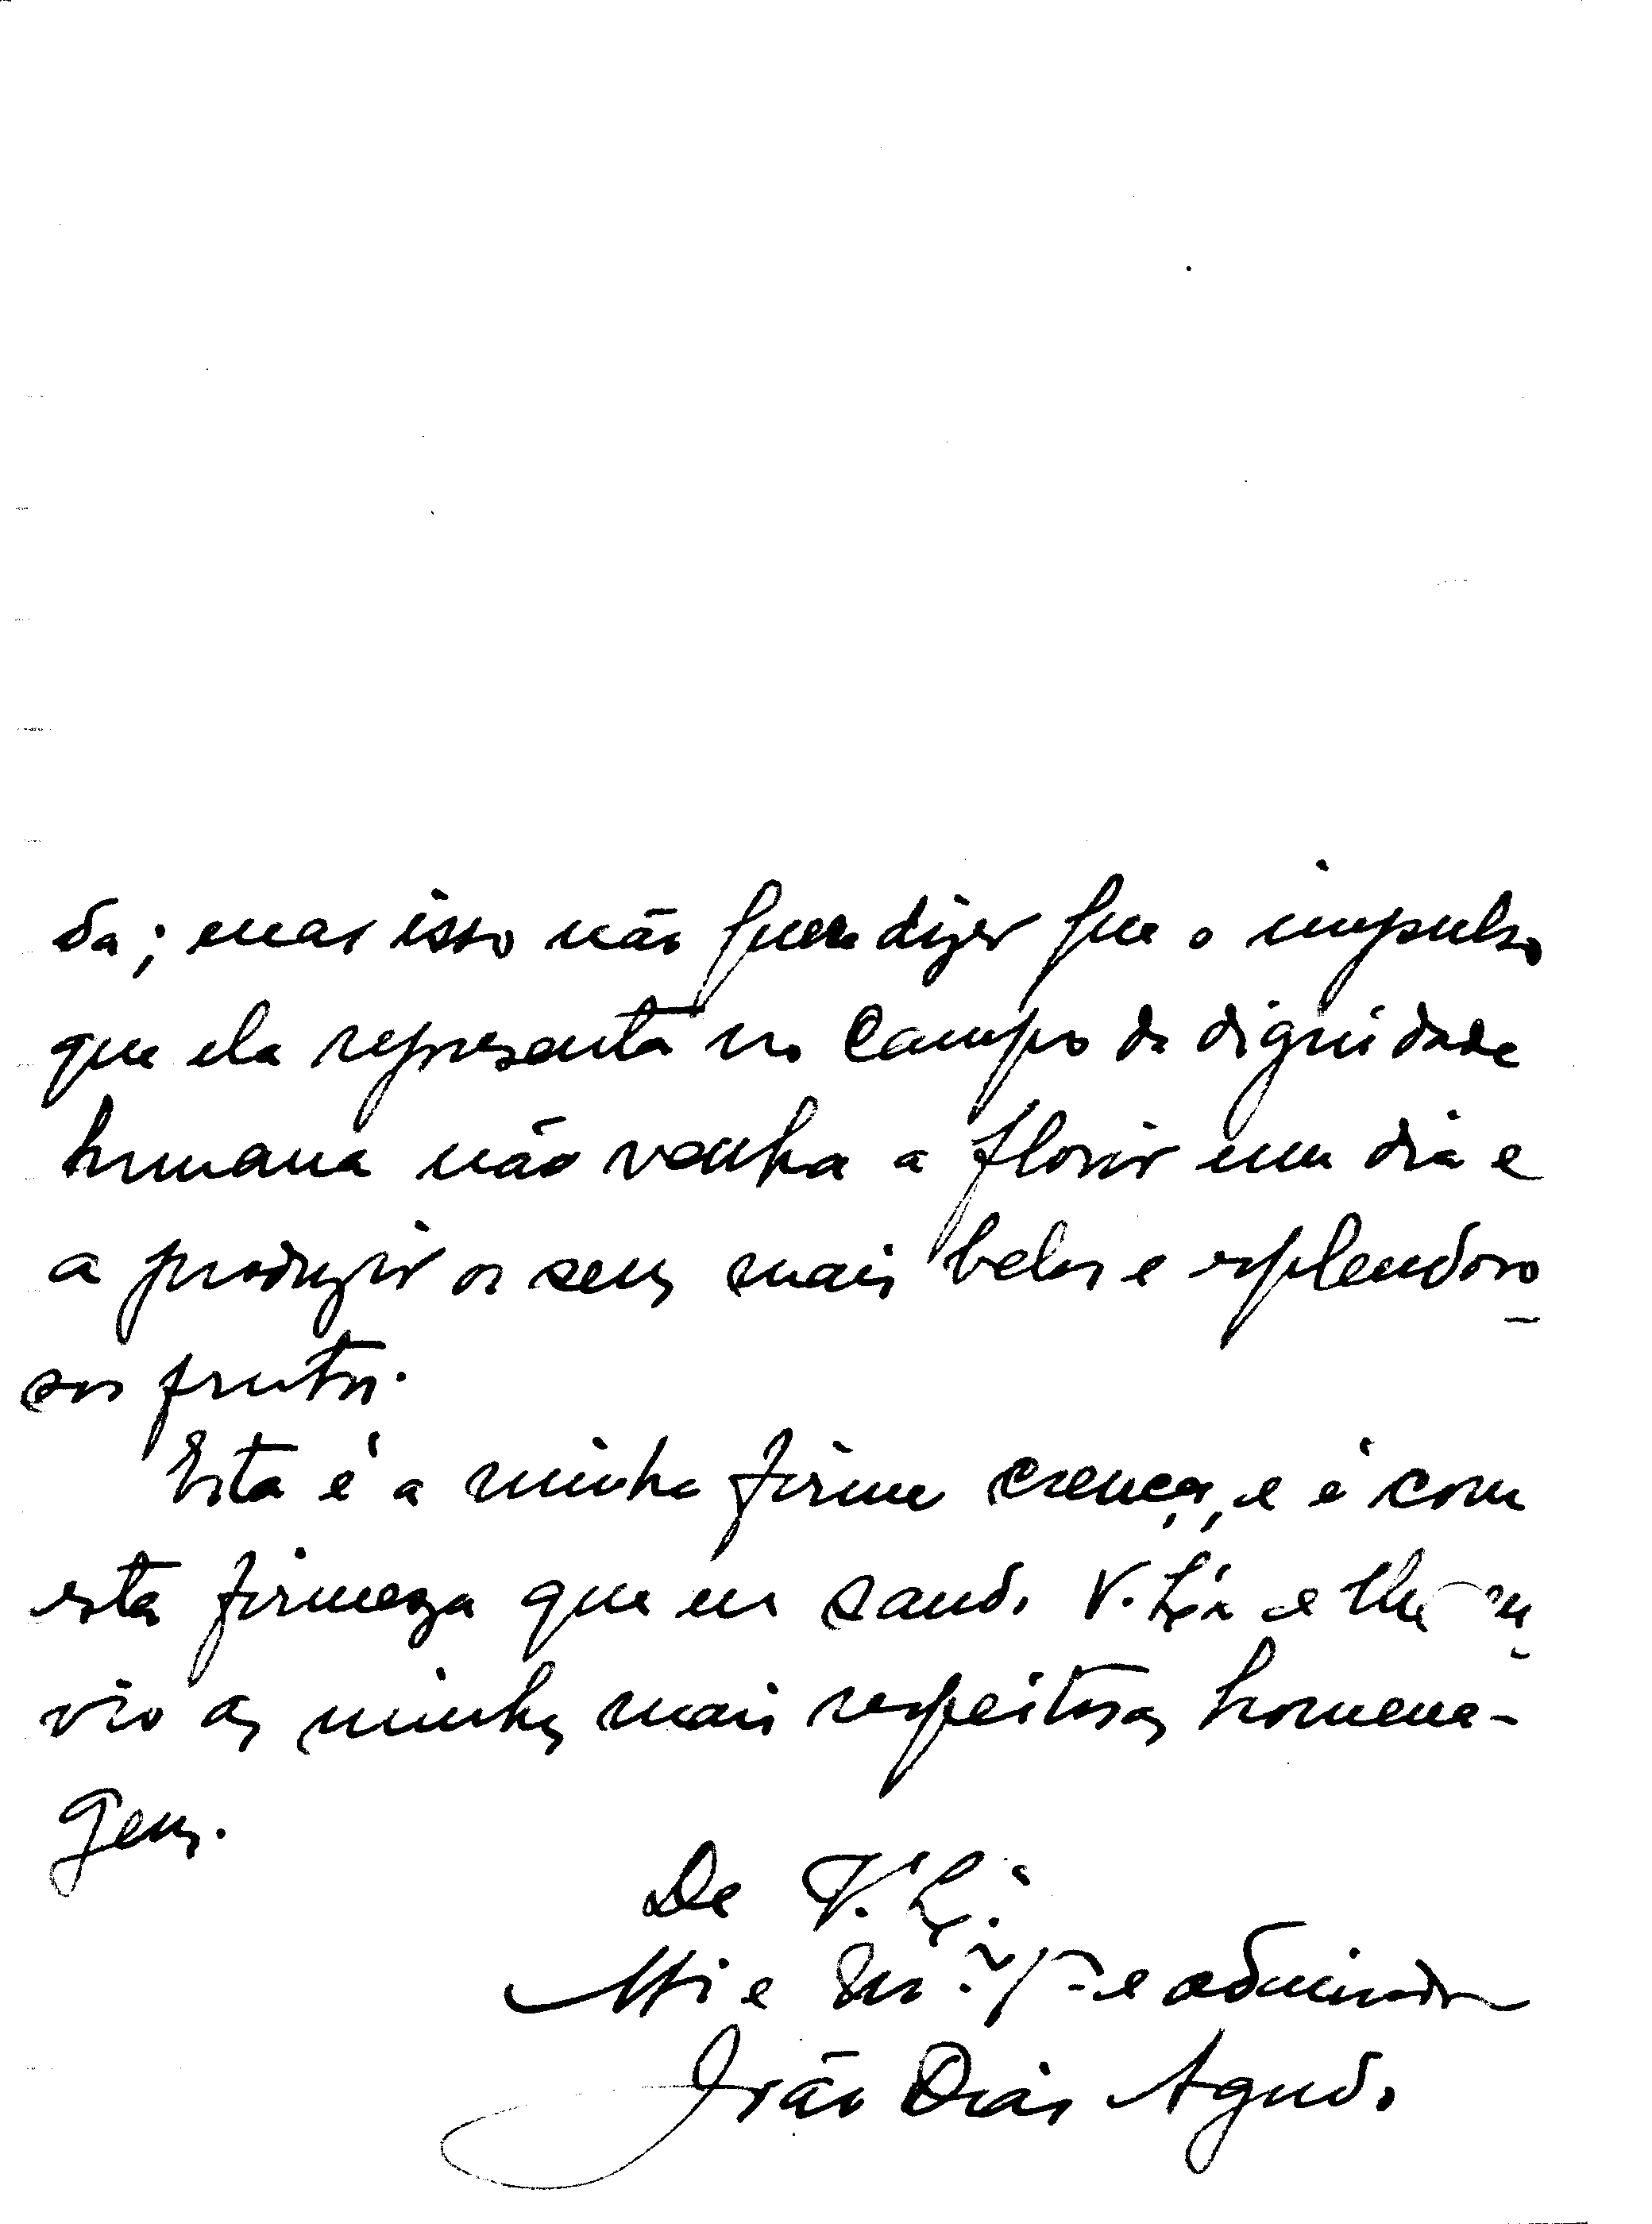 da; mas isso não quer dizer que o impulso
que ela representa no campo da dignidade
humana não venha a florir um dia e
a produzir os seus mais belos e esplendoro
sos frutos.
Esta é a minha firme crença, e é com
esta firmeza que eu saúdo V. Exª e lhe en
vio as minhas mais respeitosas homena-
gens.
De V. Exª
e admirador
João Dias Agudo